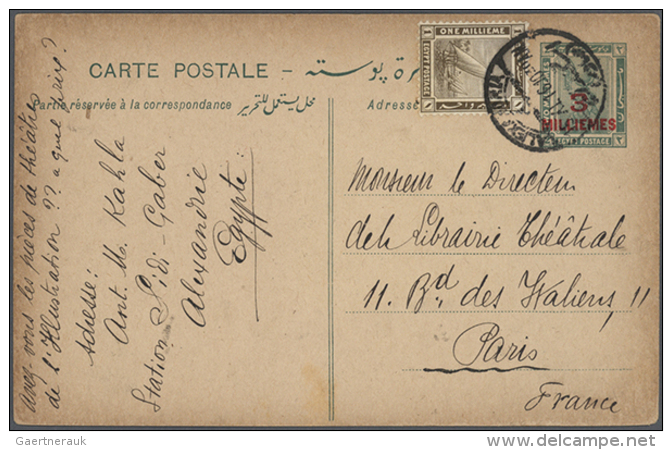 CARTE POSTALE – كرة پوسته
Carte réservée à la correspondance محل يستعمل للتحرير
Adresse
ONE MILLIEME
EGYPT POSTAGE
1 1
3
MILLIEMES
EGYPT POSTAGE
Avez-vous les pièces de théâtre
de l'Illustration ?? a quel prix ?
Adresse:
Ant. M. Kahla
Station Sidi-Gaber
Alexandrie
Egypte
Monsieur le Directeur
de la Librairie Théâtrale
11. Bd des Italiens, 11
Paris
France
Gaertnerauk
delcampe.net